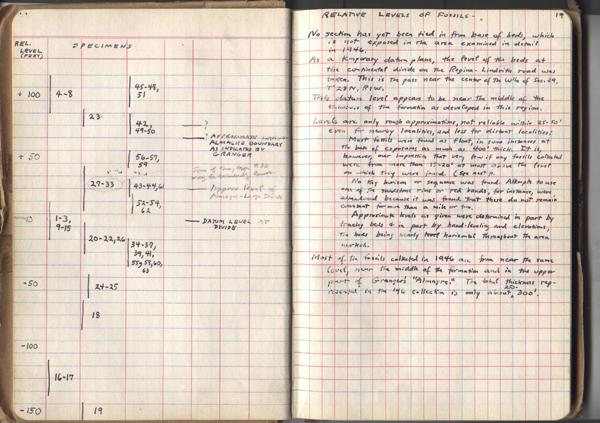 REL.
LEVEL
(FEET)
SPECIMENS
+100
4-8
45-48,
51
23
42,
49-50
?
?
AFFROXIMATE
ALMAGRE BOUNDARY
AS INDICATED BY
GRANGER
+50
56-57,
59
27-33
43-44,61
Approx level of
Almagre-Largo Divide
52-54,
62
0
1-3,
9-15
DATUM LEVEL AT
DIVIDE
20-22,26
34-37,
39,41,
55,58,60,
63
-50
24-25
18
-100
16-17
-150
19
RELATIVE LEVELS OF FOSSILS.
19
No section has yet been tied in from base of beds, which
is not exposed in the area examined in detail
in 1946.
As a temporary datum plane, the level of the beds at
the continental divide on the Regina-Lindrith road was
taken. This is the pass near the center of the W½ of Sec. 29,
T23N, R1W.
This datum level appears to be near the middle of the
thickness of the formation as developed in this region.
Levels are only rough approximations, not reliable within 25-50'
even for nearby localities, and less for distant localities:
Most fossils were found as float, in some instances at
the base of exposures as much as 400' thick. It is,
however, our impression that very few if any fossils collected
were from more than 15-20' at most above the level
on which they were found. (See next p.)
No key horizon or sequence was found. Attempts to use
one of the sandstone rims or red bands, for instance, were
abandoned because it was found that these do not remain
constant for more than a mile or two.
Approximate levels as given were determined in part by
tracing beds & in part by hand-leveling and elevations,
the beds being nearly level horizontal throughout the area
worked.
Most of the fossils collected in 1946 are from near the same
level, near the middle of the formation and in the upper
part of Granger's "Almagre." The total thickness rep-
resented in the 1946 collection is only about 250-300'.